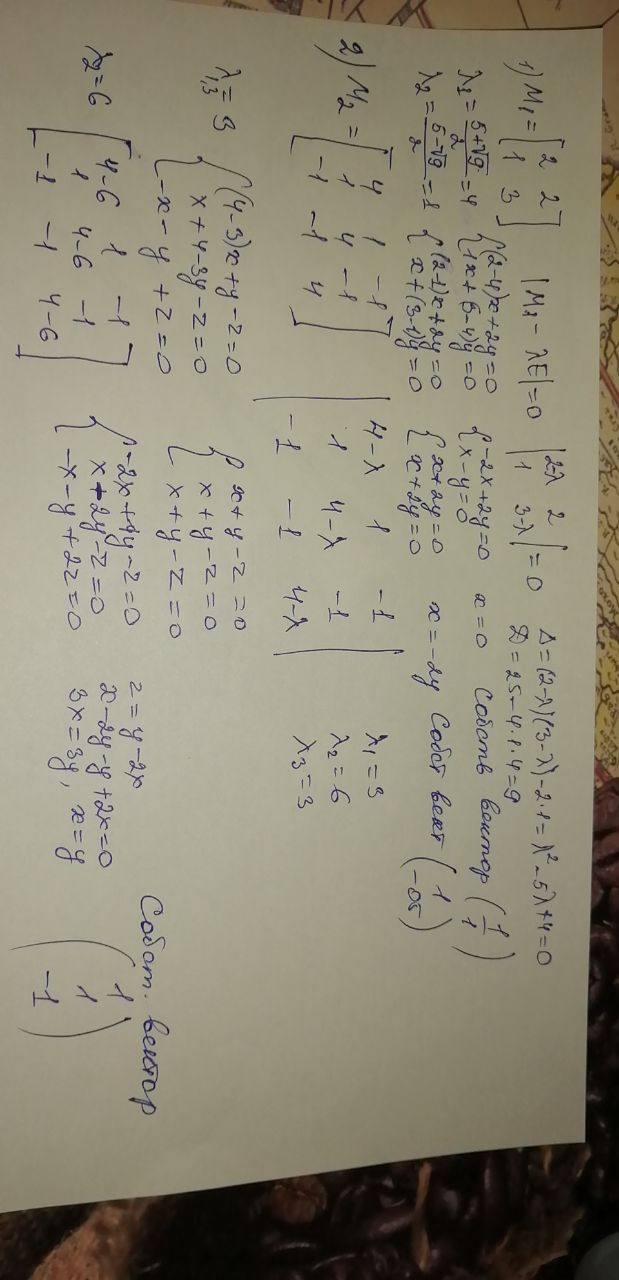 1) M₁ = [2 2; 1 3] |M₁ - λE| = 0 |2-λ 2; 1 3-λ| = 0 Δ = (2-λ)(3-λ) - 2·1 = λ² - 5λ + 4 = 0
D = 25 - 4·1·4 = 9
λ₁ = (5+√9)/2 = 4 {(2-4)x + 2y = 0; 1x + (3-4)y = 0 {-2x + 2y = 0; x - y = 0 x = 0 Собств вектор (1; 1)
λ₂ = (5-√9)/2 = 1 {(2-1)x + 2y = 0; x + (3-1)y = 0 {x + 2y = 0; x + 2y = 0 x = -2y Собст вект (1; -05)
2) M₂ = [4 1 -1; 1 4 -1; -1 -1 4] |4-λ 1 -1; 1 4-λ -1; -1 -1 4-λ|
λ₁ = 3
λ₂ = 6
λ₃ = 3
λ₁,₃ = 3 {(4-3)x + y - z = 0; x + 4-3y - z = 0; -x - y + z = 0 {x + y - z = 0; x + y - z = 0; x + y - z = 0
λ₂ = 6 [4-6 1 -1; 1 4-6 -1; -1 -1 4-6] {-2x + y - z = 0; x - 2y - z = 0; -x - y + 2z = 0
z = y - 2x
x - 2y - y + 2x = 0
3x = 3y, x = y
Собст. вектор
(1; 1; -1)